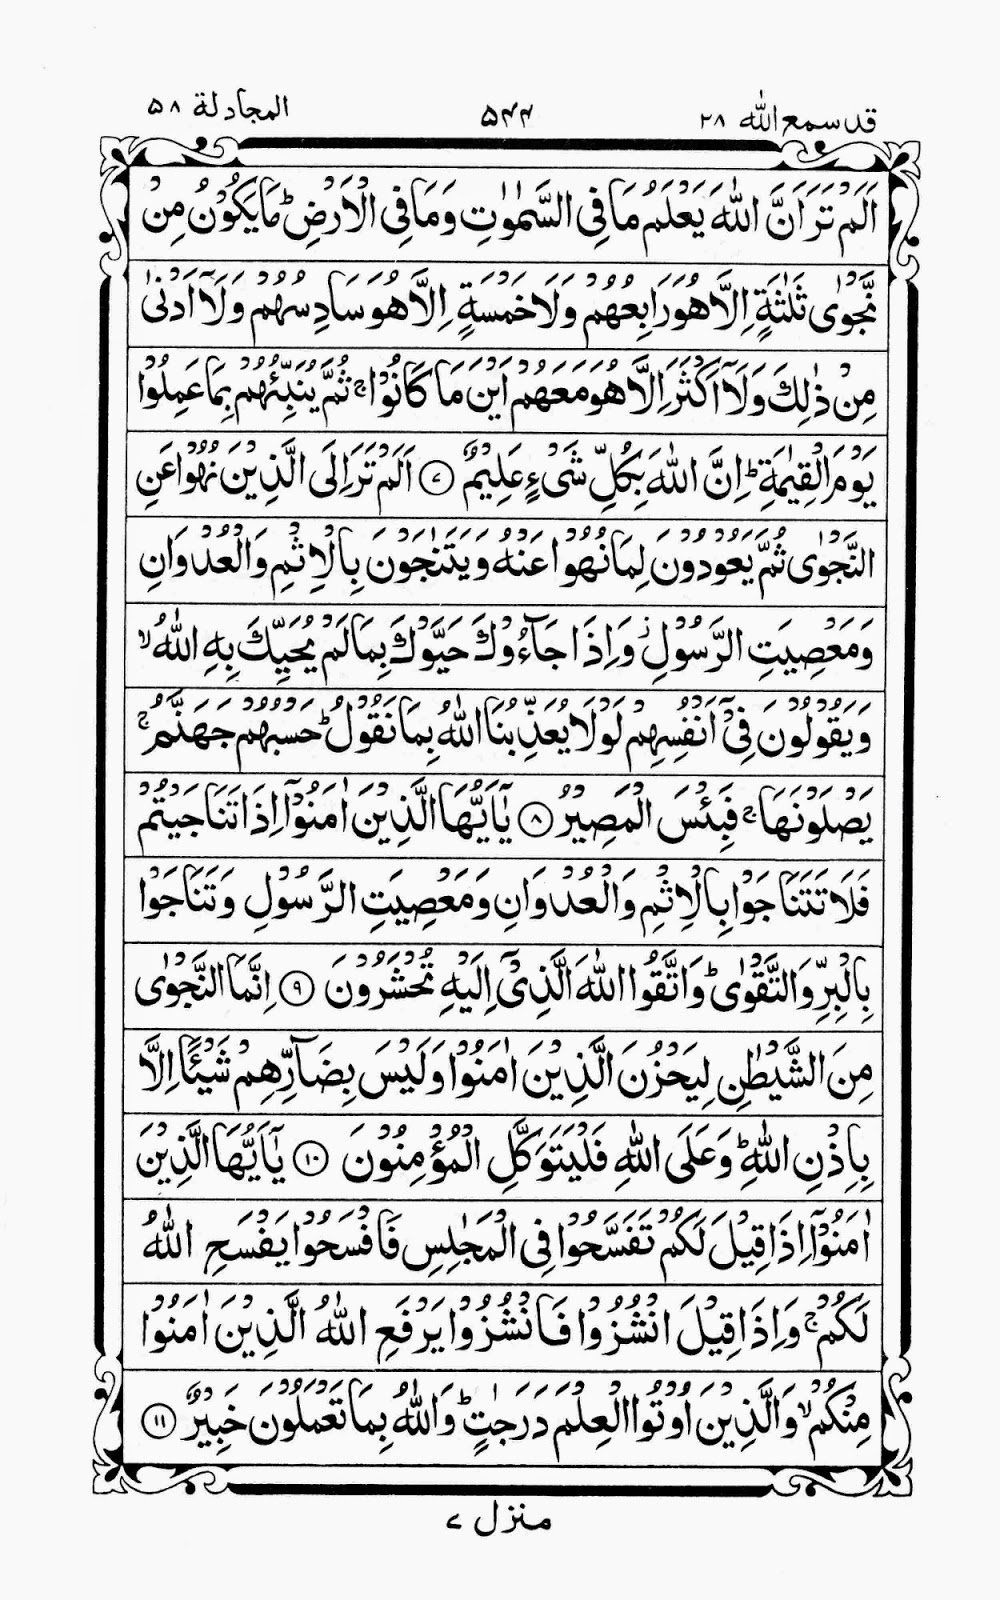 قد سمع الله ٢٨
٥٤٤
المجادلة ٥٨
اَلَمْ تَرَ اَنَّ اللّٰهَ يَعْلَمُ مَا فِي السَّمٰوٰتِ وَمَا فِي الْاَرْضِ ؕ مَا يَكُوْنُ مِنْ
نَّجْوٰى ثَلٰثَةٍ اِلَّا هُوَ رَابِعُهُمْ وَلَا خَمْسَةٍ اِلَّا هُوَ سَادِسُهُمْ وَلَاۤ اَدْنٰى
مِنْ ذٰلِكَ وَلَاۤ اَكْثَرَ اِلَّا هُوَ مَعَهُمْ اَيْنَ مَا كَانُوْا ۚ ثُمَّ يُنَبِّئُهُمْ بِمَا عَمِلُوْا
يَوْمَ الْقِيٰمَةِ ؕ اِنَّ اللّٰهَ بِكُلِّ شَيْءٍ عَلِيْمٌ ﴿٧﴾ اَلَمْ تَرَ اِلَى الَّذِيْنَ نُهُوْا عَنِ
النَّجْوٰى ثُمَّ يَعُوْدُوْنَ لِمَا نُهُوْا عَنْهُ وَيَتَنٰجَوْنَ بِالْاِثْمِ وَالْعُدْوَانِ
وَمَعْصِيَتِ الرَّسُوْلِ ؗ وَاِذَا جَآءُوْكَ حَيَّوْكَ بِمَا لَمْ يُحَيِّكَ بِهِ اللّٰهُ ۙ
وَيَقُوْلُوْنَ فِيْۤ اَنْفُسِهِمْ لَوْلَا يُعَذِّبُنَا اللّٰهُ بِمَا نَقُوْلُ ؕ حَسْبُهُمْ جَهَنَّمُ ۚ
يَصْلَوْنَهَا ۚ فَبِئْسَ الْمَصِيْرُ ﴿٨﴾ يٰۤاَيُّهَا الَّذِيْنَ اٰمَنُوْۤا اِذَا تَنَاجَيْتُمْ
فَلَا تَتَنَاجَوْا بِالْاِثْمِ وَالْعُدْوَانِ وَمَعْصِيَتِ الرَّسُوْلِ وَتَنَاجَوْا
بِالْبِرِّ وَالتَّقْوٰى ؕ وَاتَّقُوا اللّٰهَ الَّذِيْۤ اِلَيْهِ تُحْشَرُوْنَ ﴿٩﴾ اِنَّمَا النَّجْوٰى
مِنَ الشَّيْطٰنِ لِيَحْزُنَ الَّذِيْنَ اٰمَنُوْا وَلَيْسَ بِضَآرِّهِمْ شَيْئًا اِلَّا
بِاِذْنِ اللّٰهِ ؕ وَعَلَى اللّٰهِ فَلْيَتَوَكَّلِ الْمُؤْمِنُوْنَ ﴿١٠﴾ يٰۤاَيُّهَا الَّذِيْنَ
اٰمَنُوْۤا اِذَا قِيْلَ لَكُمْ تَفَسَّحُوْا فِي الْمَجٰلِسِ فَافْسَحُوْا يَفْسَحِ اللّٰهُ
لَكُمْ ۚ وَاِذَا قِيْلَ انْشُزُوْا فَانْشُزُوْا يَرْفَعِ اللّٰهُ الَّذِيْنَ اٰمَنُوْا
مِنْكُمْ ۙ وَالَّذِيْنَ اُوْتُوا الْعِلْمَ دَرَجٰتٍ ؕ وَاللّٰهُ بِمَا تَعْمَلُوْنَ خَبِيْرٌ ﴿١١﴾
منزل ٧